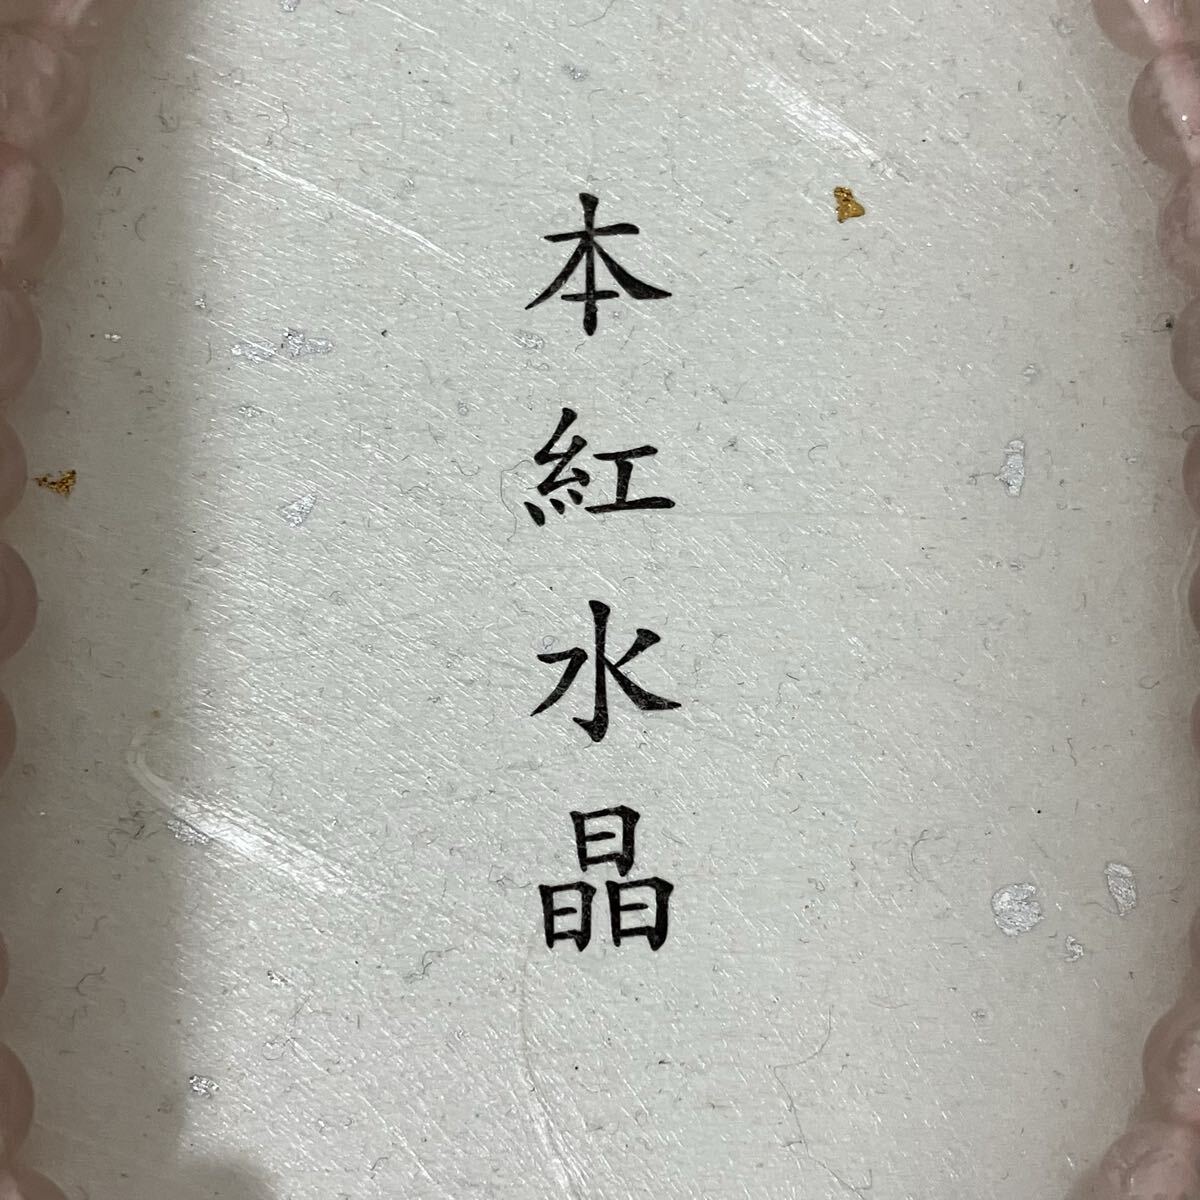 本紅水晶